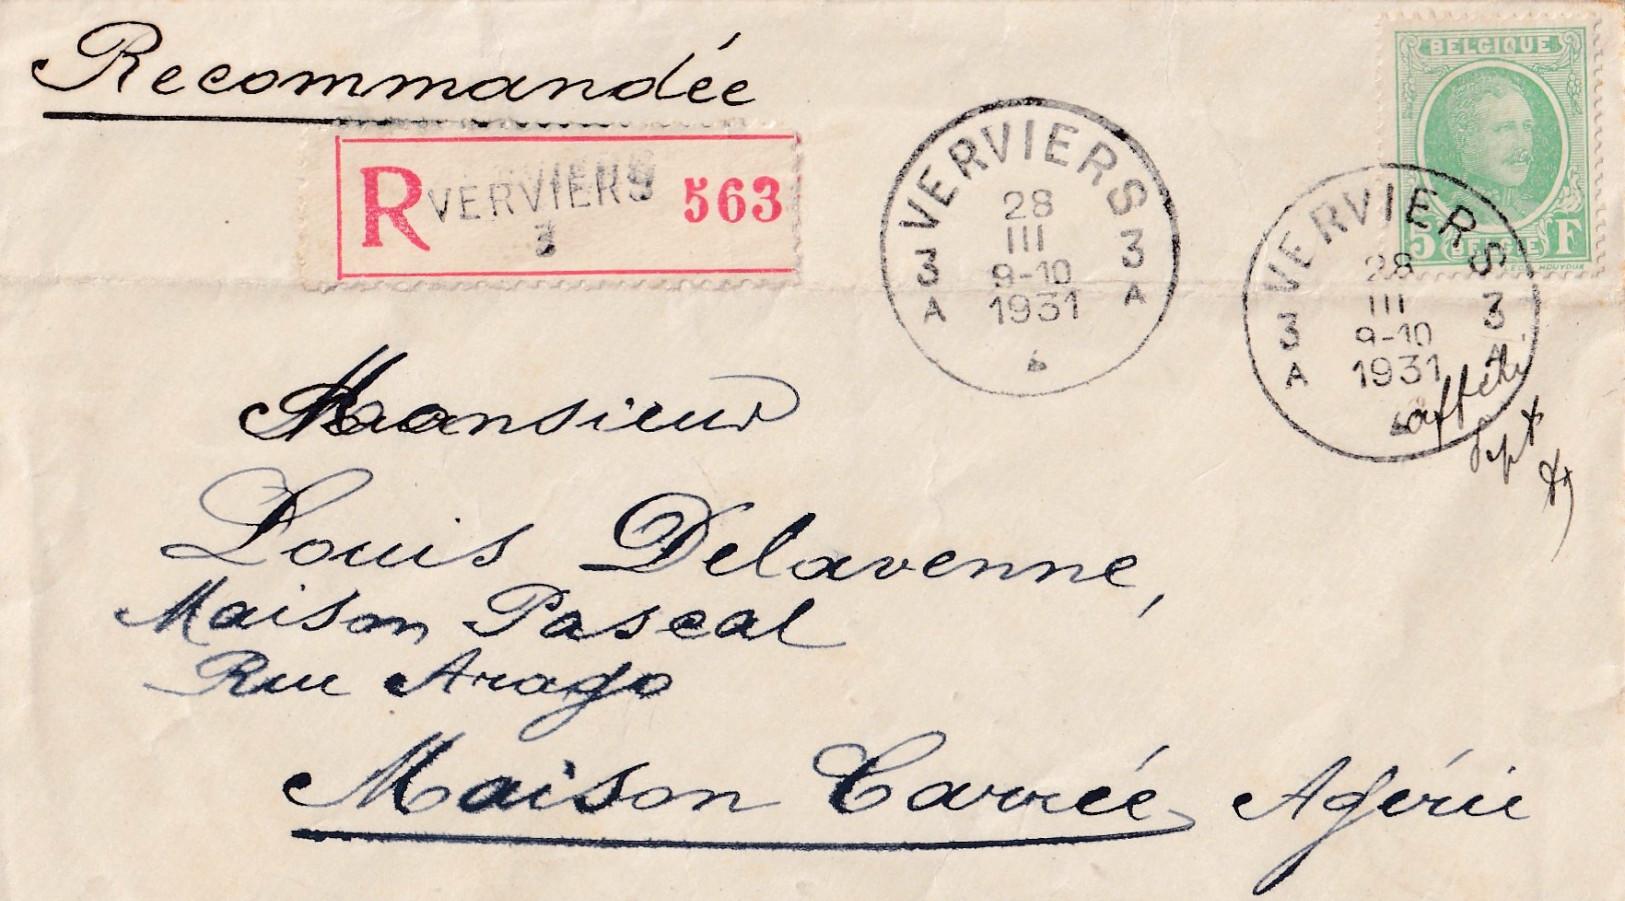 Recommandée
R VERVIERS 563
3
VERVIERS
28
III
3 9-10 3
A 1931 A
BELGIQUE
5 BELGIË F
VERVIERS
28
III
3 9-10 3
A 1931 A
Monsieur
Louis Delavenne,
Maison Pascal
Rue Arago
Maison Carrée Algérie